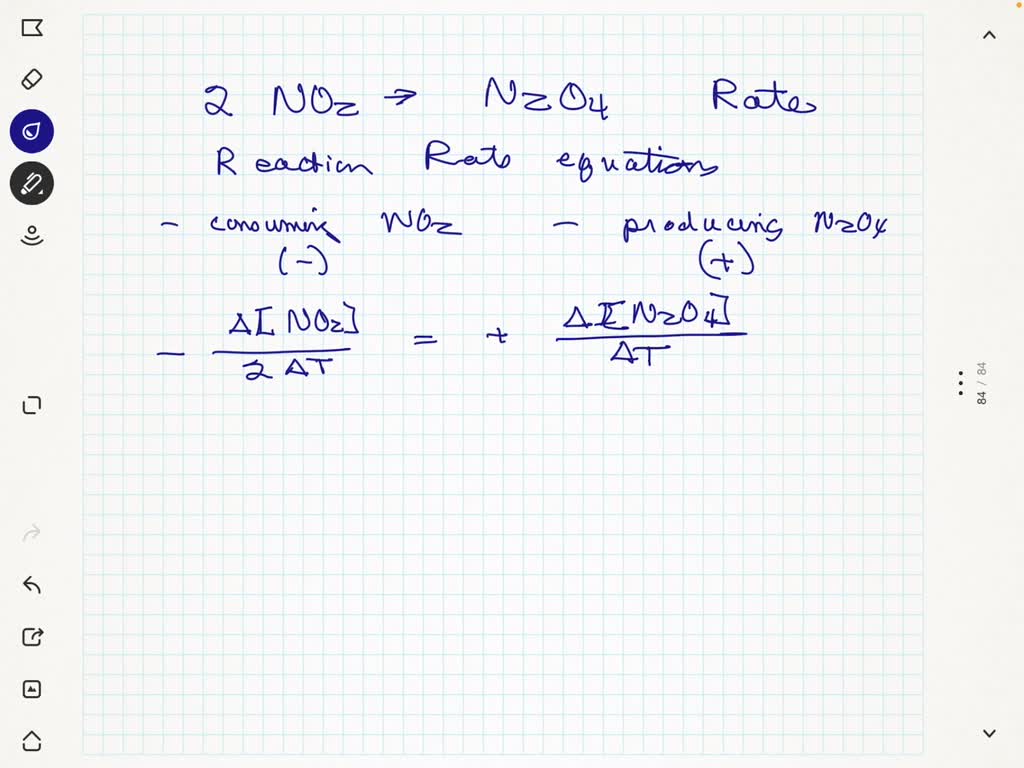 2 NO2 → N2O4 Rates
Reaction Rate equations
- consuming NO2 - producing N2O4
(-) (+)
- Δ[NO2] / 2 ΔT = + Δ[N2O4] / ΔT
84 / 84